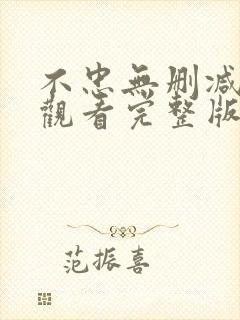 不忠無刪減
觀看完整版
范振喜